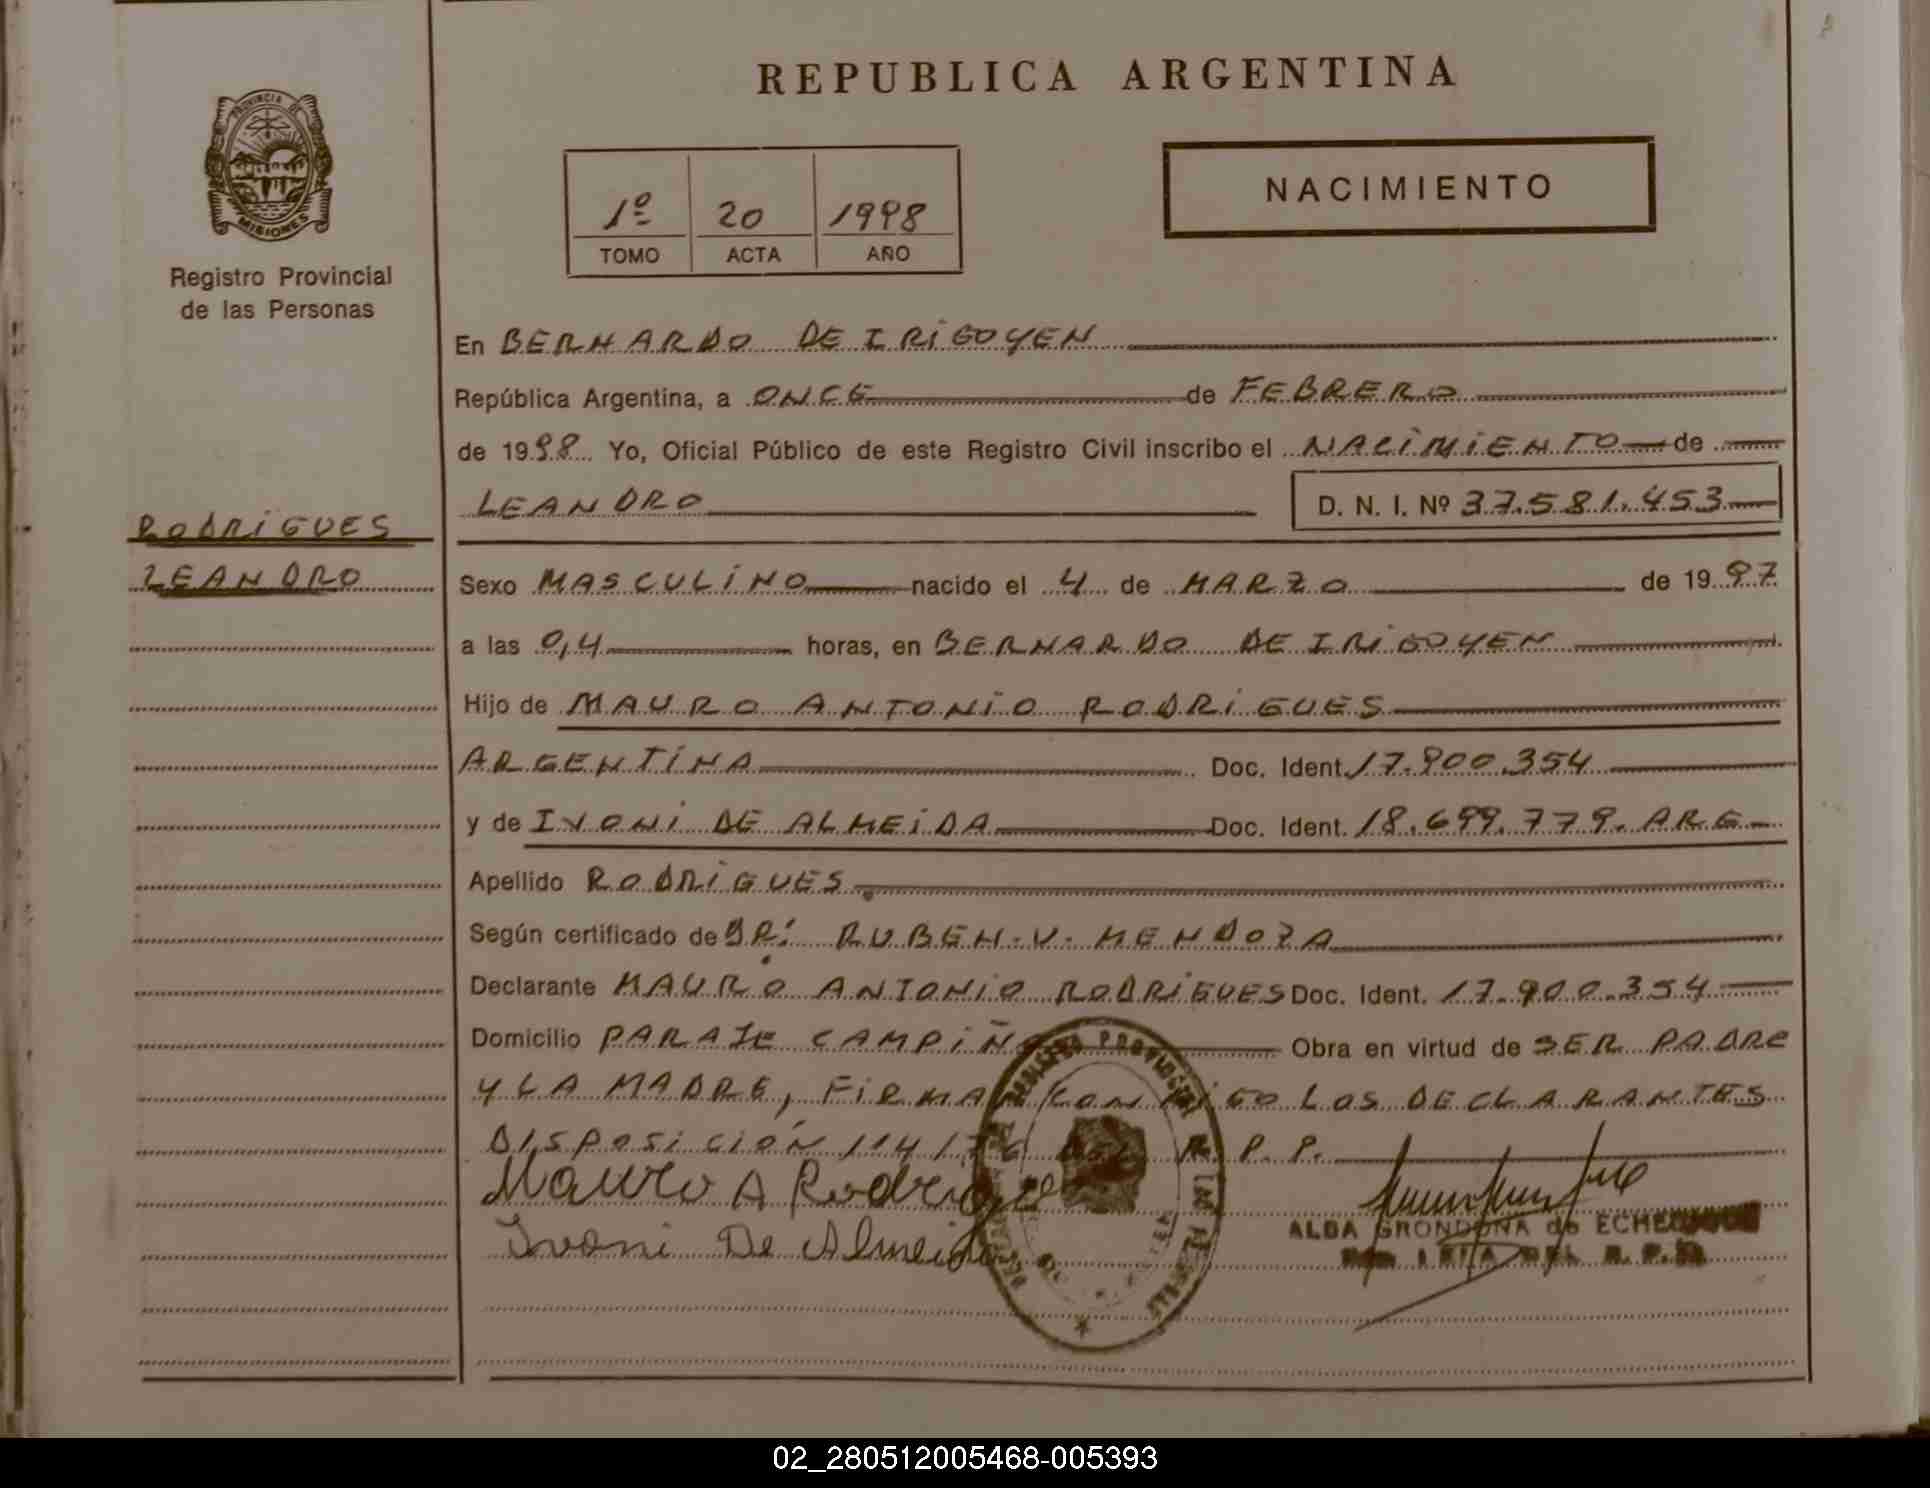 REPUBLICA ARGENTINA
PROVINCIA DE
MISIONES
Registro Provincial
de las Personas
1º 20 1998
TOMO ACTA AÑO
NACIMIENTO
En BERNARDO DE IRIGOYEN
República Argentina, a ONCE de FEBRERO
de 1998 Yo, Oficial Público de este Registro Civil inscribo el NACIMIENTO de
LEANDRO D. N. I. Nº 37.581.453
RODRIGUES
LEANDRO
Sexo MASCULINO nacido el 4 de MARZO de 1997
a las 0,4 horas, en BERNARDO DE IRIGOYEN
Hijo de MAURO ANTONIO RODRIGUES
ARGENTINA Doc. Ident. 17.900.354
y de IVONI DE ALMEIDA Doc. Ident. 18.699.779. ARG
Apellido RODRIGUES
Según certificado de DR: RUBEN.V. MENDOZA
Declarante MAURO ANTONIO RODRIGUES Doc. Ident. 17.900.354
Domicilio PARAJE Obra en virtud de SER PADRE
Y LA MADRE, LOS DECLARANTES
DISPOSICIÓN R.P.P.
Mauro A
Ivoni De Almeida
ALBA GRONDONA de
02_280512005468-005393